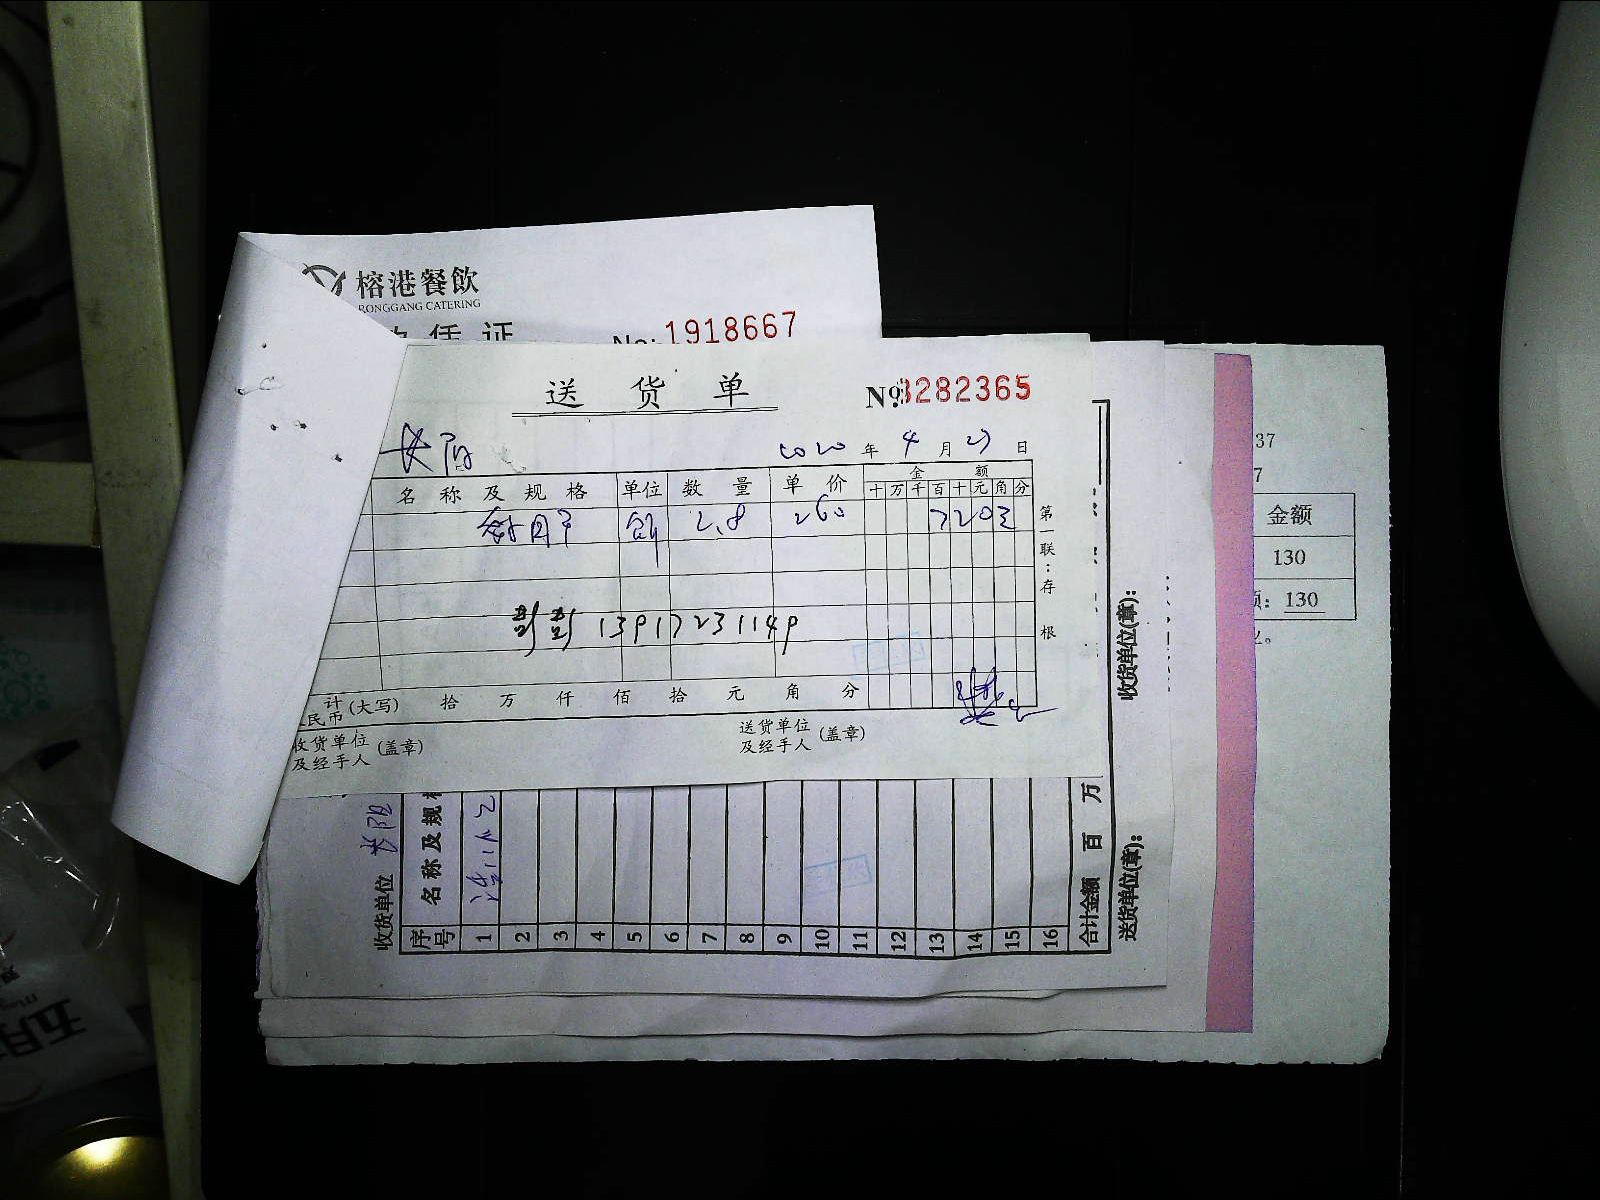 榕港餐飲
RONGGANG CATERING
凭 证
No: 1918667
送 货 单
№ 3282365
长阳
2020 年 4 月 27 日
名 称 及 规 格 单位 数 量 单 价 金 额
十 万 千 百 十 元 角 分
2.8 260
13917231149
第一联：存根
计(大写) 拾 万 仟 佰 拾 元 角 分
民币
收货单位 (盖章) 送货单位 (盖章)
及经手人 及经手人
37
7
金额
130
130
收货单位 长阳
收货单位(章):
序号 名称及规
1
2
3
4
5
6
7
8
9
10
11
12
13
14
15
16
合计金额 百 万
送货单位(章):